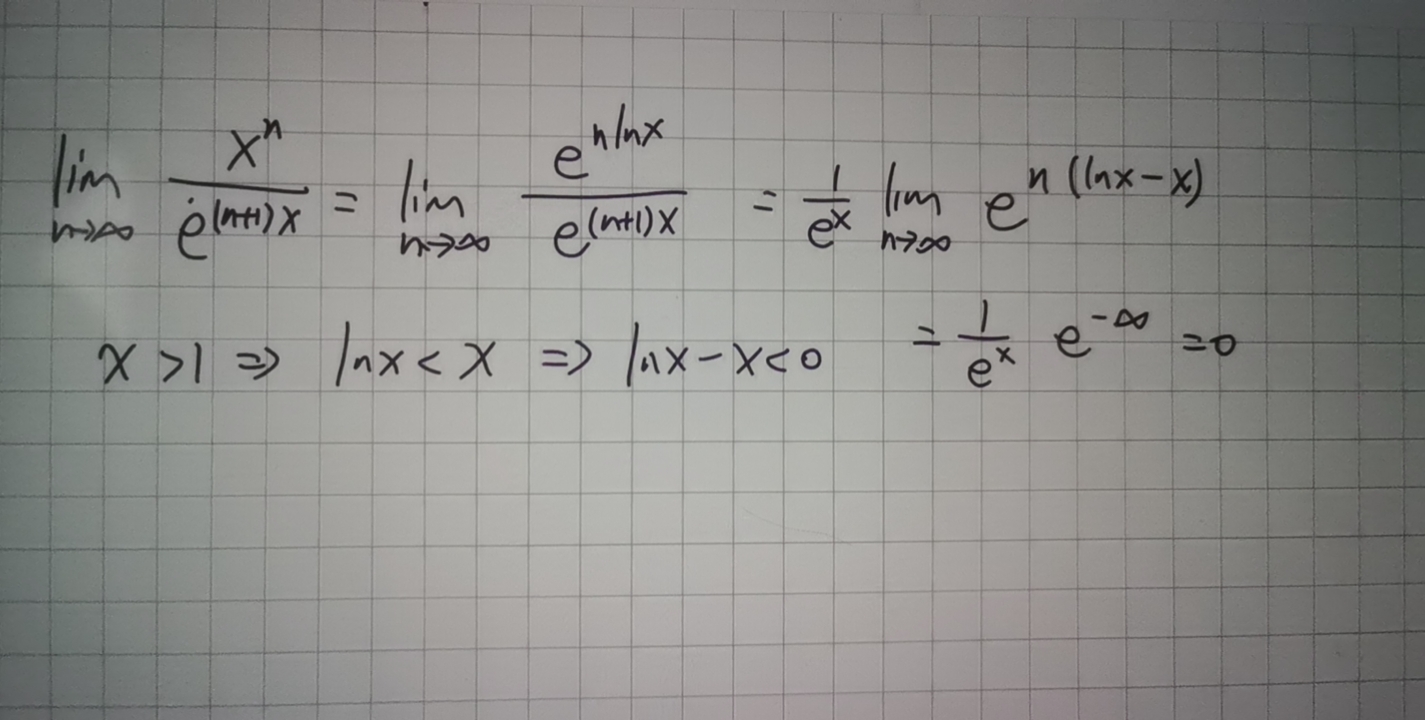 lim n→∞ x^n / e^((n+1)x) = lim n→∞ e^(n ln x) / e^((n+1)x) = 1/e^x lim n→∞ e^(n(ln x - x))
x > 1 ⇒ ln x < x ⇒ ln x - x < 0 = 1/e^x e^(-∞) = 0